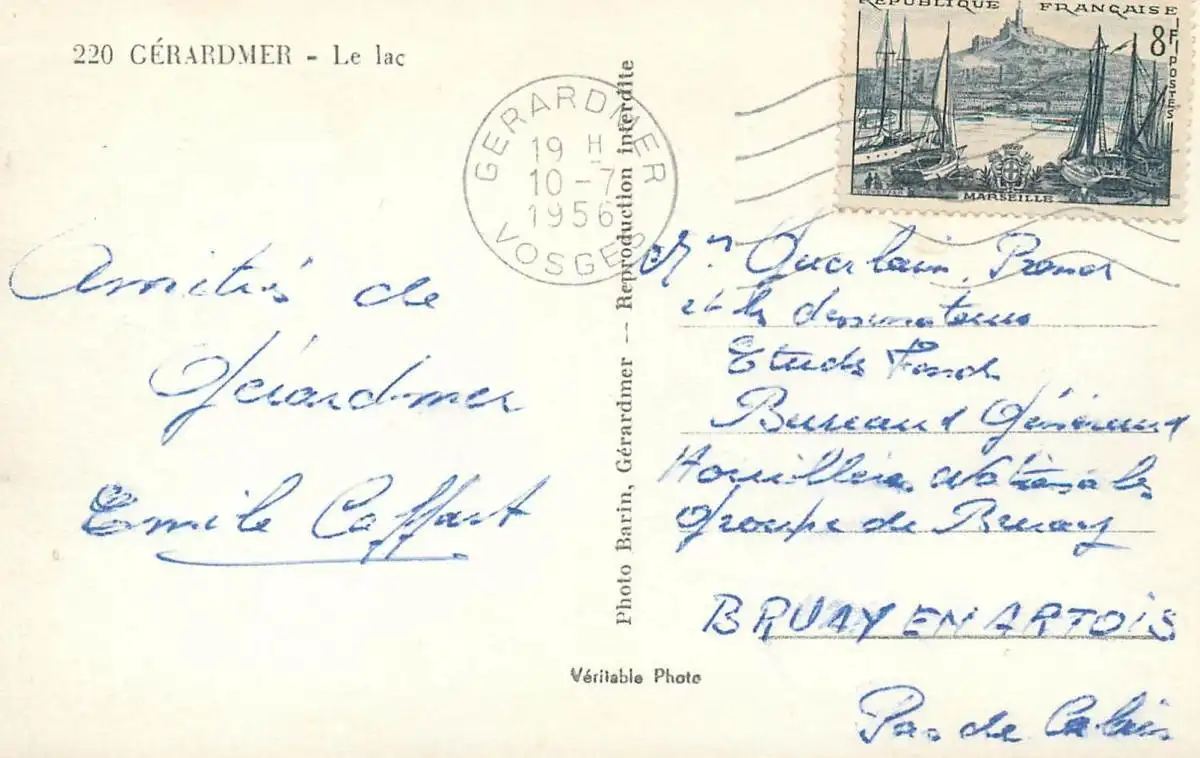 220 GÉRARDMER - Le lac
RÉPUBLIQUE FRANÇAISE
8F
POSTES
MARSEILLE
GERARDMER
19 H
10 - 7
1956
VOSGES
Amitiés de
Gérardmer
Emile Caffart
Photo Barin, Gérardmer — Reproduction interdite
Véritable Photo
Guerlain,
et les dessinateurs
Etudes Fond
Bureaux Généraux
Houillères Nationales
Groupe de Bruay
BRUAY EN ARTOIS
Pas de Calais